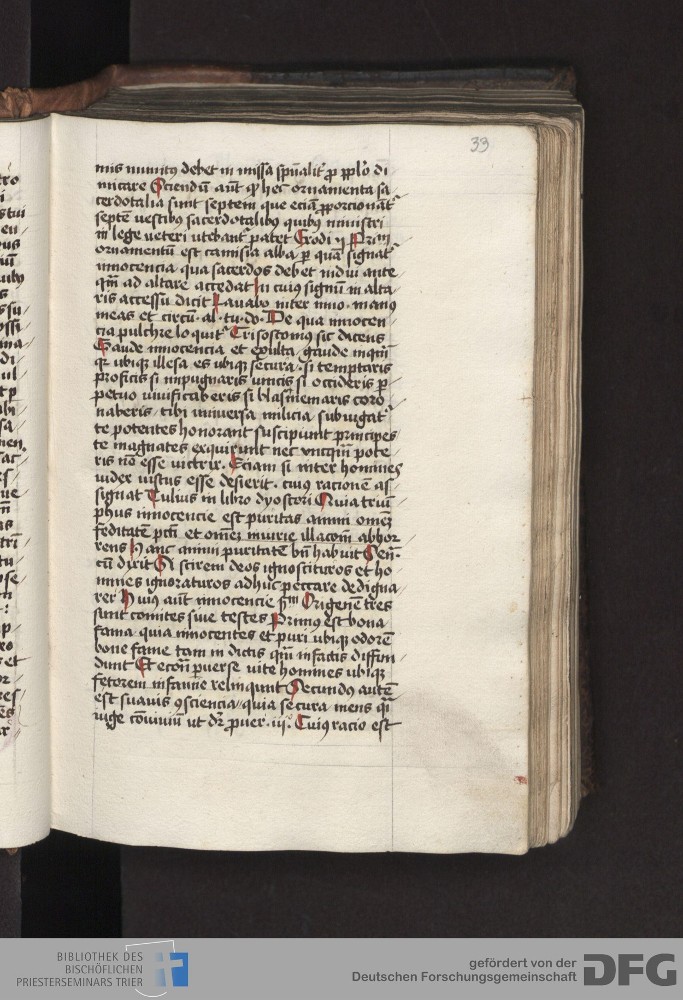 33
mis munitus debet in missa spualit p pplo di
micare Sciendu aut q hec ornamenta sa
cerdotalia sunt septem que eciam pporcionat
septe vestibus sacerdotalibus quibus ministri
in lege veteri utebant patet Exodi
ornamentu est camisia alba p qua signat
innocencia qua sacerdos debet indui ante
qm ad altare accedat In cuius signum in alta
ris accessu dicit Lavabo inter inno manus
meas et circu al tu do De qua innocen
cia pulchre loquit Crisostomus sic dicens
Gaude innocencia et exulta gaude inquam
q ubique illesa es ubique secura si temptaris
proficis si impugnaris vincis si occideris p
petuo vivificaberis si blasfemaris coro
naberis tibi universa milicia subiugat
te potentes honorant suscipiunt principes
te magnates exquirunt nec unquam pote
ris no esse victrix Eciam si inter homines
videx iustus esse desierit cuius racionem as
signat Tulius in libro dyoscori Quia
phus innocencie est puritas animi omne
feditate pcti et omne iniurie illacom abhor
rens Hanc animi puritate bn habuit Sen
cu dixit Si scirem deos ignoscituros et ho
mines ignoraturos adhuc peccare dedigna
rer Huius aut innocencie Origenem tres
sunt comites sive testes Primus est bona
fama quia innocentes et puri ubique odore
bone fame tam in dictis qm in factis diffun
dunt Et econ perverse vite homines ubique
fetorem infamie relinquunt Secundus autem
est suavis consciencia quia secura mens
iuge convivium ut dr prover Cuius racio est
BIBLIOTHEK DES
BISCHÖFLICHEN
PRIESTERSEMINARS TRIER
gefördert von der
Deutschen Forschungsgemeinschaft
DFG